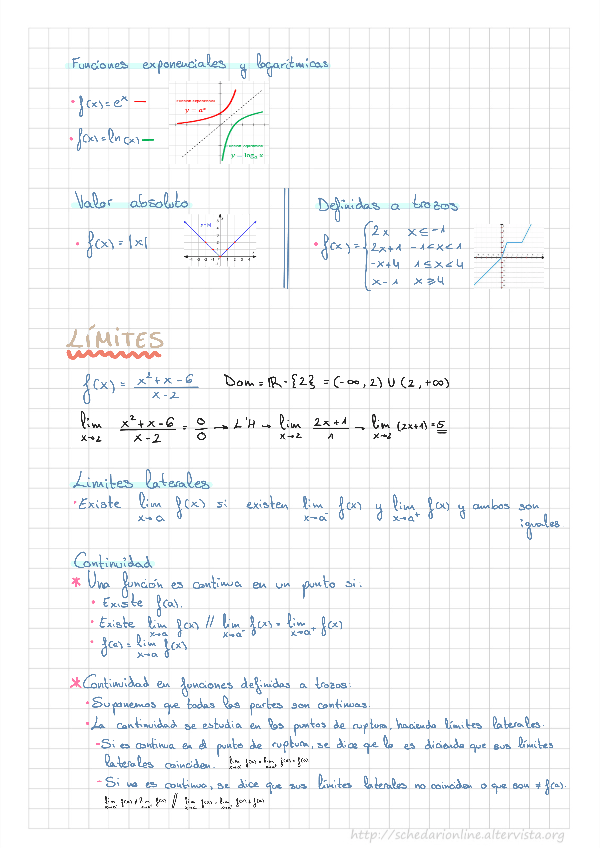 Funciones exponenciales y logarítmicas
• f(x) = eˣ —
• f(x) = ln(x) —
y = aˣ
y = logₐ x
Valor absoluto
• f(x) = |x|
Definidas a trozos
• f(x) = { 2x x ≤ -1
2x+1 -1 < x < 1
-x+4 1 ≤ x < 4
x-1 x ≥ 4
LÍMITES
f(x) = (x² + x - 6)/(x - 2) Dom = ℝ - {2} = (-∞, 2) ∪ (2, +∞)
lim x→2 (x² + x - 6)/(x - 2) = 0/0 → L'H → lim x→2 (2x+1)/1 → lim x→2 (2x+1) = 5
Límites laterales
• Existe lim x→a f(x) si existen lim x→a⁻ f(x) y lim x→a⁺ f(x) y ambos son
iguales
Continuidad
* Una función es continua en un punto si:
• Existe f(a).
• Existe lim x→a f(x) // lim x→a⁻ f(x) = lim x→a⁺ f(x)
• f(a) = lim x→a f(x)
* Continuidad en funciones definidas a trozos:
• Suponemos que todas las partes son continuas.
• La continuidad se estudia en los puntos de ruptura, haciendo límites laterales.
- Si es continua en el punto de ruptura, se dice que lo es diciendo que sus límites
laterales coinciden.
- Si no es continua, se dice que sus límites laterales no coinciden o que son ≠ f(a).
http://schedarionline.altervista.org